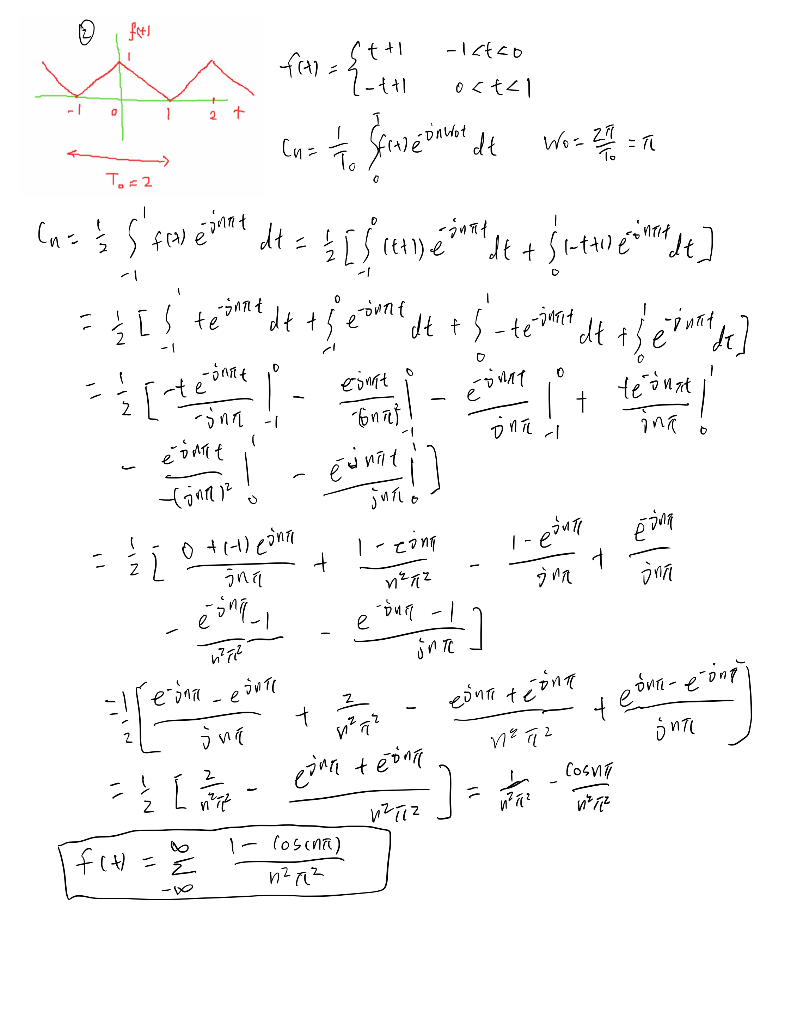 ②
f(t)
1
-1 0 1 2 t
T₀ = 2
f(t) = { t+1   -1<t<0
-t+1   0<t<1
Cn = 1/T₀ ∫₀ᵀ f(t) e^{-jnω₀t} dt   W₀ = 2π/T₀ = π
Cn = 1/2 ∫_{-1}^{1} f(t) e^{-jnπt} dt = 1/2 [ ∫_{-1}^{0} (t+1) e^{-jnπt} dt + ∫_{0}^{1} (-t+1) e^{-jnπt} dt ]
= 1/2 [ ∫_{-1}^{1} t e^{-jnπt} dt + ∫_{-1}^{0} e^{-jnπt} dt + ∫_{0}^{1} -t e^{-jnπt} dt + ∫_{0}^{1} e^{-jnπt} dt ]
= 1/2 [ -t e^{-jnπt}/-jnπ |_{-1}^{0} - e^{-jnπt}/-(jnπ)² |_{-1}^{0} - e^{-jnπt}/jnπ |_{-1}^{0} + t e^{-jnπt}/jnπ |_{0}^{1}
- e^{-jnπt}/-(jnπ)² |_{0}^{1} - e^{-jnπt}/jnπ |_{0}^{1} ]
= 1/2 [ 0 + (-1) e^{jnπ}/jnπ + 1 - e^{jnπ}/n²π² - 1 - e^{jnπ}/jnπ + e^{-jnπ}/jnπ
- e^{-jnπ} - 1/n²π² - e^{-jnπ} - 1/jnπ ]
= 1/2 [ e^{-jnπ} - e^{jnπ}/jnπ + 2/n²π² - e^{jnπ} + e^{-jnπ}/n²π² + e^{jnπ} - e^{-jnπ}/jnπ ]
= 1/2 [ 2/n²π² - e^{jnπ} + e^{-jnπ}/n²π² ] = 1/n²π² - cosnπ/n²π²
f(t) = ∑_{-∞}^{∞} 1 - cos(nπ)/n²π²